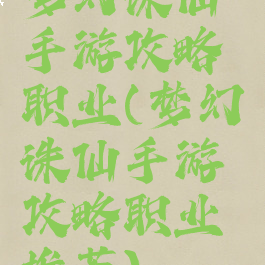 梦幻诛仙
手游攻略
职业(梦幻
诛仙手游
攻略职业
推荐)